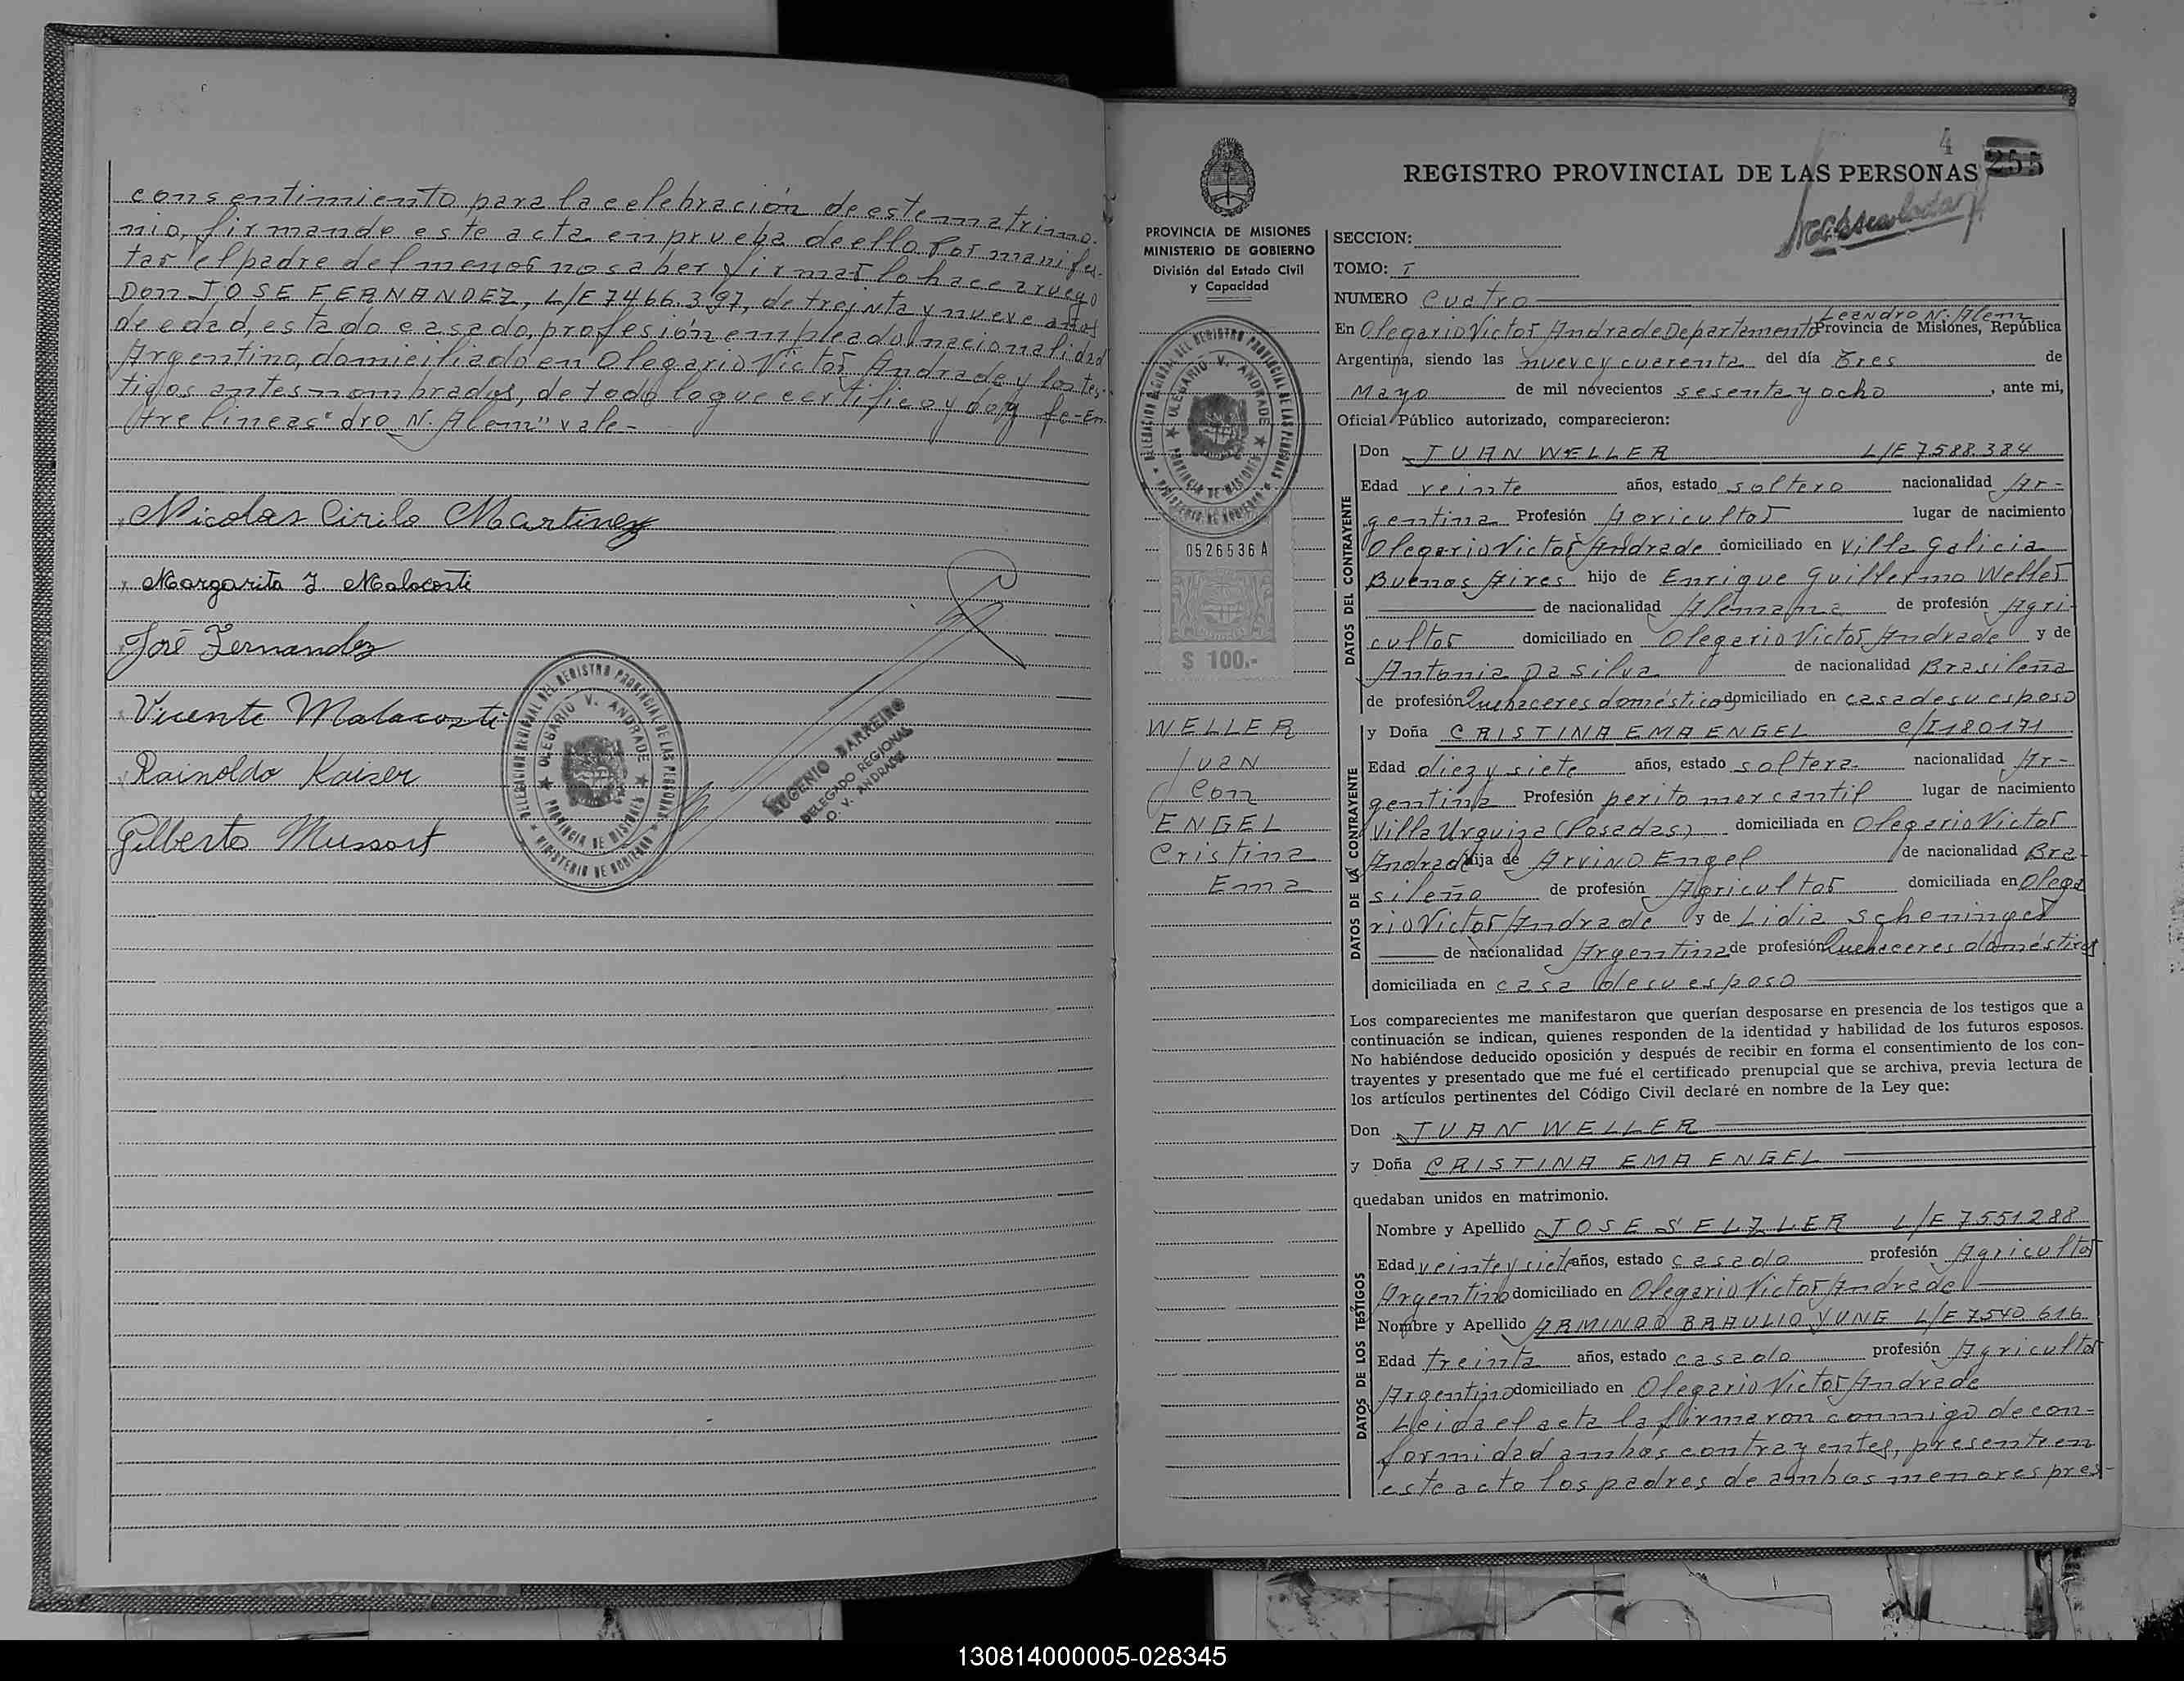 consentimiento para la celebración de este matrimo-
nio, firmande este acta en prueba de ello. Por manifes-
tar el padre del menor no saber firmar, lo hace a ruego
Don JOSE FERNANDEZ, L/E 7466.397, de treinta y nueve años
de edad, estado casado, profesión empleado, nacionalidad
Argentino, domiciliado en Olegario Victor Andrade y los tes-
tigos antes nombrados, de todo lo que certifico y doy fe- En-
tre lineas "dro N. Alem" vale-
Nicolas Cirilo Martinez
Margarita J Malacosti
José Fernandez
Vicente Malacosti
Rainoldo Kaiser
Gilberto Mussart
DELEGACION REGIONAL DEL REGISTRO PROVINCIAL DE LAS PERSONAS
OLEGARIO V. ANDRADE
PROVINCIA DE MISIONES
MINISTERIO DE GOBIERNO
EUGENIO BARREIRO
DELEGADO REGIONAL
O. V. ANDRADE
4
255
REGISTRO PROVINCIAL DE LAS PERSONAS
PROVINCIA DE MISIONES
MINISTERIO DE GOBIERNO
División del Estado Civil
y Capacidad
DELEGACION REGIONAL DEL REGISTRO PROVINCIAL DE LAS PERSONAS
OLEGARIO V. ANDRADE
PROVINCIA DE MISIONES
MINISTERIO DE GOBIERNO
0526536 A
$ 100.-
WELLER
Juan
Con
ENGEL
Cristina
Ema
SECCION:
TOMO: I
NUMERO Cuatro
Leandro N. Alem
En Olegario Victor Andrade Departamento Provincia de Misiones, República
Argentina, siendo las nueve y cuarenta del día Tres de
Mayo de mil novecientos sesenta y ocho, ante mi,
Oficial Público autorizado, comparecieron:
DATOS DEL CONTRAYENTE
Don JUAN WELLER L/E 7.588.384
Edad veinte años, estado soltero nacionalidad Ar-
gentina Profesión Agricultor lugar de nacimiento
Olegario Victor Andrade domiciliado en Villa Galicia
Buenos Aires hijo de Enrique Guillermo Weller
de nacionalidad Alemana de profesión Agri-
cultor domiciliado en Olegario Victor Andrade y de
Antonia Da Silva de nacionalidad Brasileña
de profesión Quehaceres domésticos domiciliado en casa de su esposo
DATOS DE LA CONTRAYENTE
y Doña CRISTINA EMA ENGEL C/I 180171
Edad diez y siete años, estado soltera nacionalidad Ar-
gentina Profesión perito mercantil lugar de nacimiento
Villa Urquiza (Posadas) domiciliada en Olegario Victor
Andrade hija de Arvino Engel de nacionalidad Bra-
sileño de profesión Agricultor domiciliada en Olega
rio Victor Andrade y de Lidia Scheninger
de nacionalidad Argentina de profesión Quehaceres domésticos
domiciliada en casa de su esposo
Los comparecientes me manifestaron que querían desposarse en presencia de los testigos que a
continuación se indican, quienes responden de la identidad y habilidad de los futuros esposos.
No habiéndose deducido oposición y después de recibir en forma el consentimiento de los con-
trayentes y presentado que me fué el certificado prenupcial que se archiva, previa lectura de
los artículos pertinentes del Código Civil declaré en nombre de la Ley que:
Don JUAN WELLER
y Doña CRISTINA EMA ENGEL
quedaban unidos en matrimonio.
DATOS DE LOS TESTIGOS
Nombre y Apellido JOSE SELZLER L/E 7551288
Edad veinte y siete años, estado casado profesión Agricultor
Argentino domiciliado en Olegario Victor Andrade
Nombre y Apellido ARMINDO BRAULIO YUNG L/E 7540 616
Edad treinta años, estado casado profesión Agricultor
Argentino domiciliado en Olegario Victor Andrade
Leida el acta la firmaron conmigo de con-
formidad ambos contrayentes, presente en
este acto los padres de ambos menores pres-
130814000005-028345